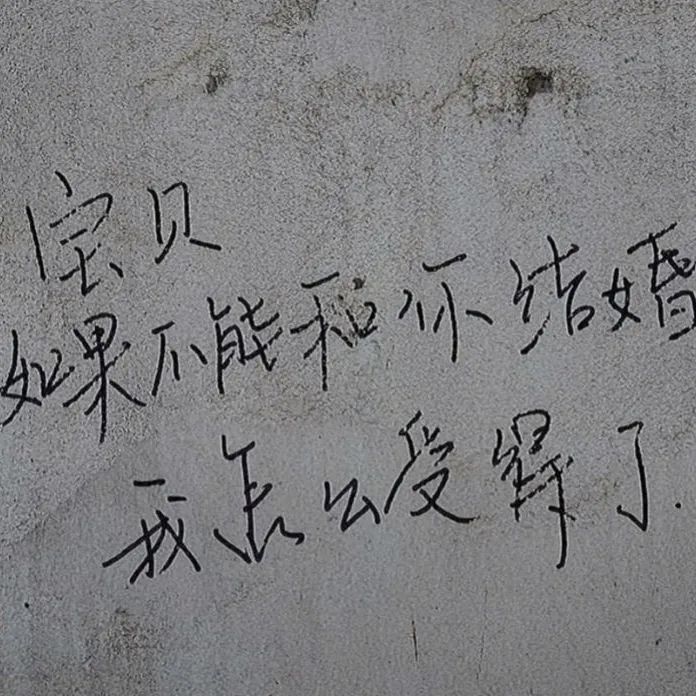 宝贝
如果不能和你结婚
我怎么受得了.